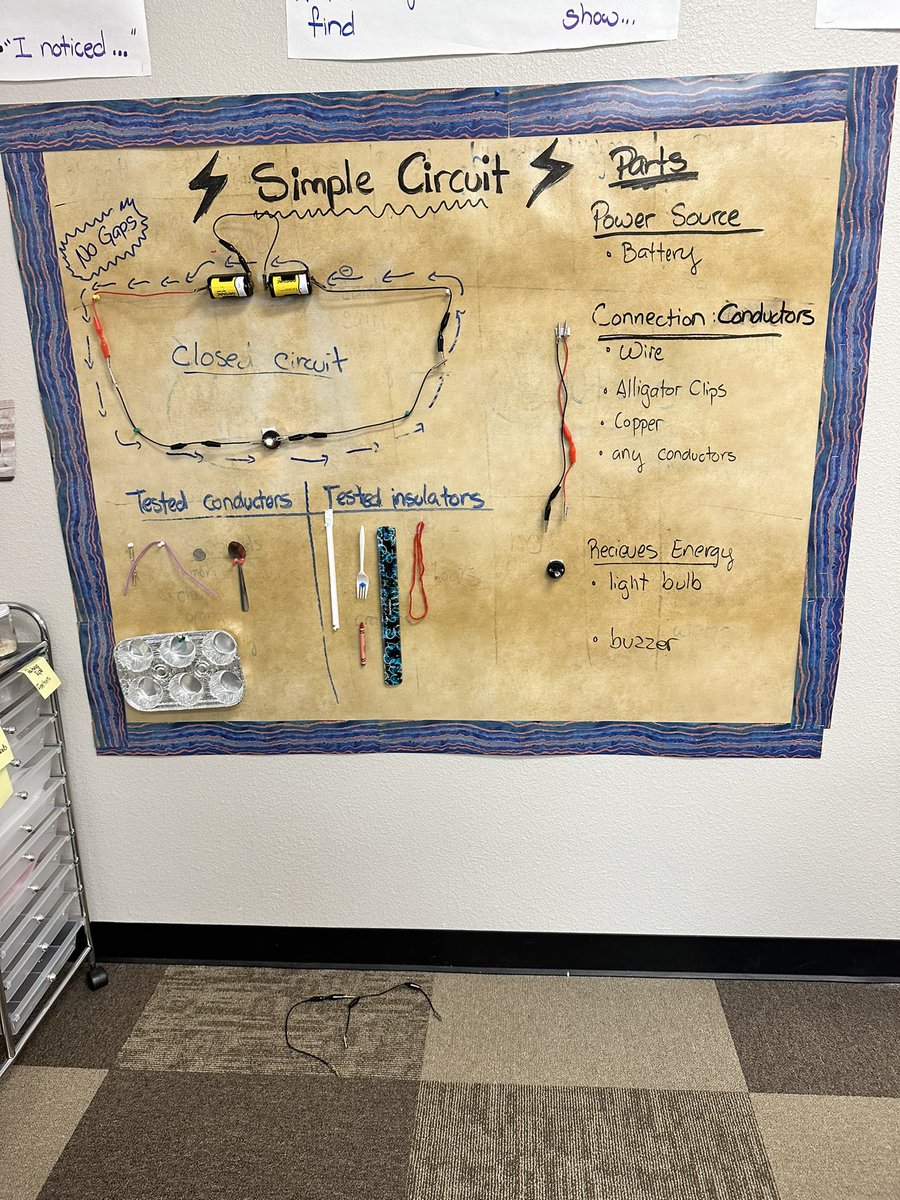 "I noticed..."
find
show...
Simple Circuit
No Gaps
Closed circuit
Tested conductors
Tested insulators
Parts
Power Source
• Battery
Connection: Conductors
• Wire
• Alligator Clips
• Copper
• any conductors
Recieves Energy
• light bulb
• buzzer